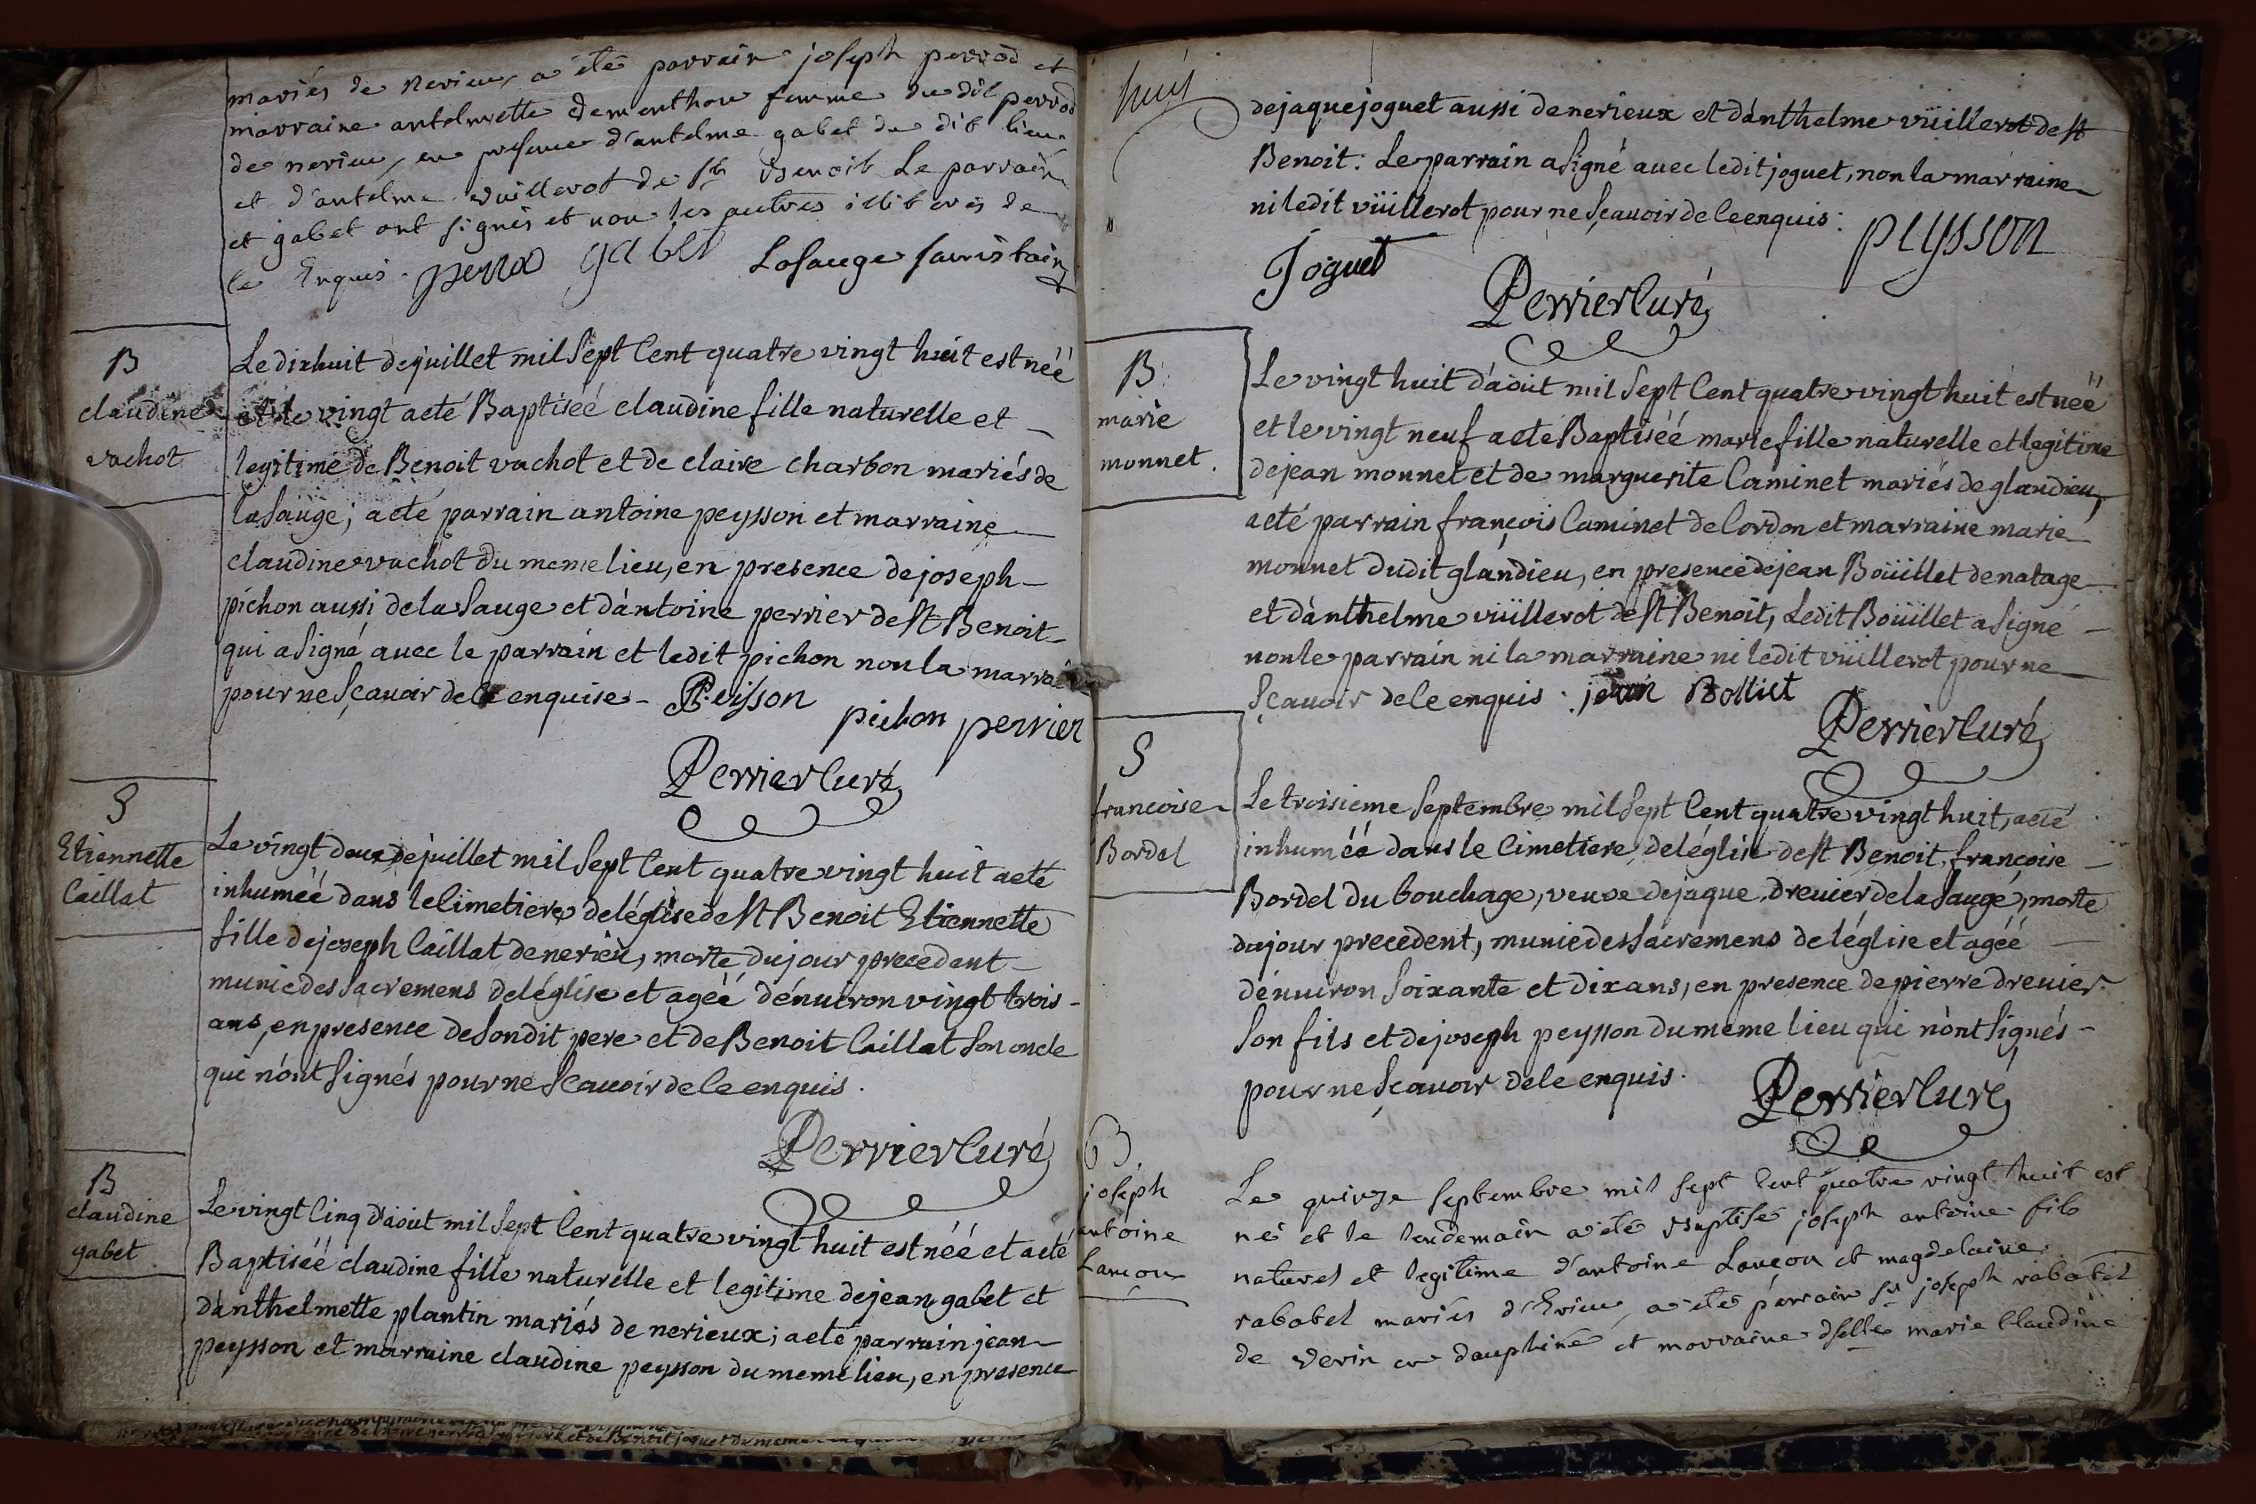 mariés de nerieu, a été parrain joseph perrod et
marraine antelmette demonthou femme du dit perrod
de nerieu, en presence d'antelme gabet du dit lieu
et d'antelme vuillerot de st Benoit Le parrain
et gabet ont signés et non les autres illiterés de
ce Enquis. perrod gabet Losauge sacristain
B
claudine
vachot
Le dixhuit de juillet mil sept Cent quatre vingt huit est néé
et le vingt a eté Baptiséé claudine fille naturelle et
legitime de Benoit vachot et de claire charbon mariés de
la sauge; a eté parrain antoine peysson et marraine
claudine vachot du meme lieu, en presence de joseph
pichon aussi de la sauge et d'antoine perrier de st Benoit
qui a signé avec le parrain et ledit pichon non la marrai
pour ne sçavoir de ce enquise - P. eysson
pichon perrier
Perrier Curé
S
Etiennette
Caillat
Le vingt deux de juillet mil sept Cent quatre vingt huit a eté
inhuméé dans le Cimetiere de l'église de st Benoit Etiennette
fille de joseph Caillat de nerieu, morte du jour precedent
munie des sacremens de l'église et agéé d'enuiron vingt trois
ans, en presence de son dit pere et de Benoit Caillat son oncle
qui n'ont signés pour ne scauoir de ce enquis.
Perrier Curé
B
claudine
gabet
Le vingt Cinq d'aoùt mil sept Cent quatre vingt huit est néé et a eté
Baptiséé claudine fille naturelle et legitime de jean gabet et
d'anthelmette plantin mariés de nerieux; a eté parrain jean
peysson et marraine claudine peysson du meme lieu, en presence
huit
de jaque joguet aussi de nerieux et d'anthelme vüillerot de st
Benoit: Le parrain a signé avec ledit joguet, non la marraine
ni ledit vüillerot pour ne sçauoir de ce enquis: peysson
Joguet
Perrier Curé
B
marie
monnet.
Le vingt huit d'aoùt mil sept Cent quatre vingt huit est néé
et le vingt neuf a eté Baptiséé marie fille naturelle et legitime
de jean monnet et de marguerite Caminet mariés de glandieu,
a eté parrain françois Caminet de Cordon et marraine marie
monnet dudit glandieu, en presence de jean Boüillet de natage
et d'anthelme vüillerot de st Benoit, Ledit Boüillet a signé
non le parrain ni la marraine ni ledit vüillerot pour ne
sçauoir de ce enquis. jean Bolliet
Perrier Curé
S
francoise
Bordel
Le troisieme septembre mil sept Cent quatre vingt huit, a eté
inhuméé dans le Cimetiere de l'église de st Benoit, françoise
Bordel du bouchage, veuve de jaque dreuier de la sauge, morte
du jour precedent, munie des sacremens de l'église et agéé
d'enuiron soixante et dix ans, en presence de pierre dreuier
son fils et de joseph peysson du meme lieu qui n'ont signés
pour ne sçauoir de ce enquis.
Perrier Curé
B
joseph
antoine
Lançon
Le quinze septembre mil sept Cent quatre vingt huit est
né et le lendemain a été Baptisé joseph antoine fils
naturel et legitime d'antoine Lançon et magdelaine
rabatel mariés d'Erieu, a été parrain sr joseph rabatel
de verin en dauphiné et marraine dselle marie Claudine